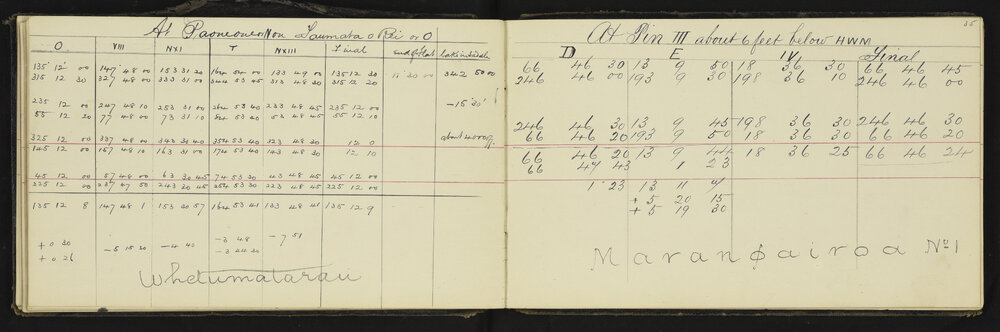 At Paoneone Non Taumata o Ri or O
O VIII NXI T NXIII Final end of flat lake in inside
135 12 00 147 48 00 153 31 20 164 54 00 133 49 00 135 12 30 11 30 00 342 50 00
315 12 30 327 48 00 333 31 00 344 53 45 313 48 30 315 12 20
235 12 00 247 48 10 253 31 00 264 53 40 233 48 45 235 12 00 -15 30
55 12 20 77 48 00 73 31 10 84 53 40 53 48 45 55 12 10
325 12 00 337 48 00 343 30 40 354 53 40 323 48 30 12 0 about 4000 ft
145 12 00 157 48 10 163 31 00 174 53 40 143 48 30 12 10
45 12 00 57 48 00 63 30 45 74 53 30 43 48 45 45 12 00
225 12 00 237 47 50 243 30 45 254 53 30 223 48 45 225 12 00
135 12 8 147 48 1 153 30 57 164 53 41 133 48 41 135 12 9
+0 30 -5 15 30 -4 40 -3 48 -7 51
+0 26 -3 44 30
Whetumatarau
35
At Pin III about 6 feet below HWM
D E IVI Final
66 46 30 13 9 50 18 36 30 66 46 45
246 46 00 193 9 30 198 36 10 246 46 00
246 46 30 13 9 45 198 36 30 246 46 30
66 46 20 193 9 50 18 36 30 66 46 20
66 46 20 13 9 44 18 36 25 66 46 24
66 47 43 1 23
1 23 13 11 7
+5 20 15
+5 19 30
Marangairoa No 1